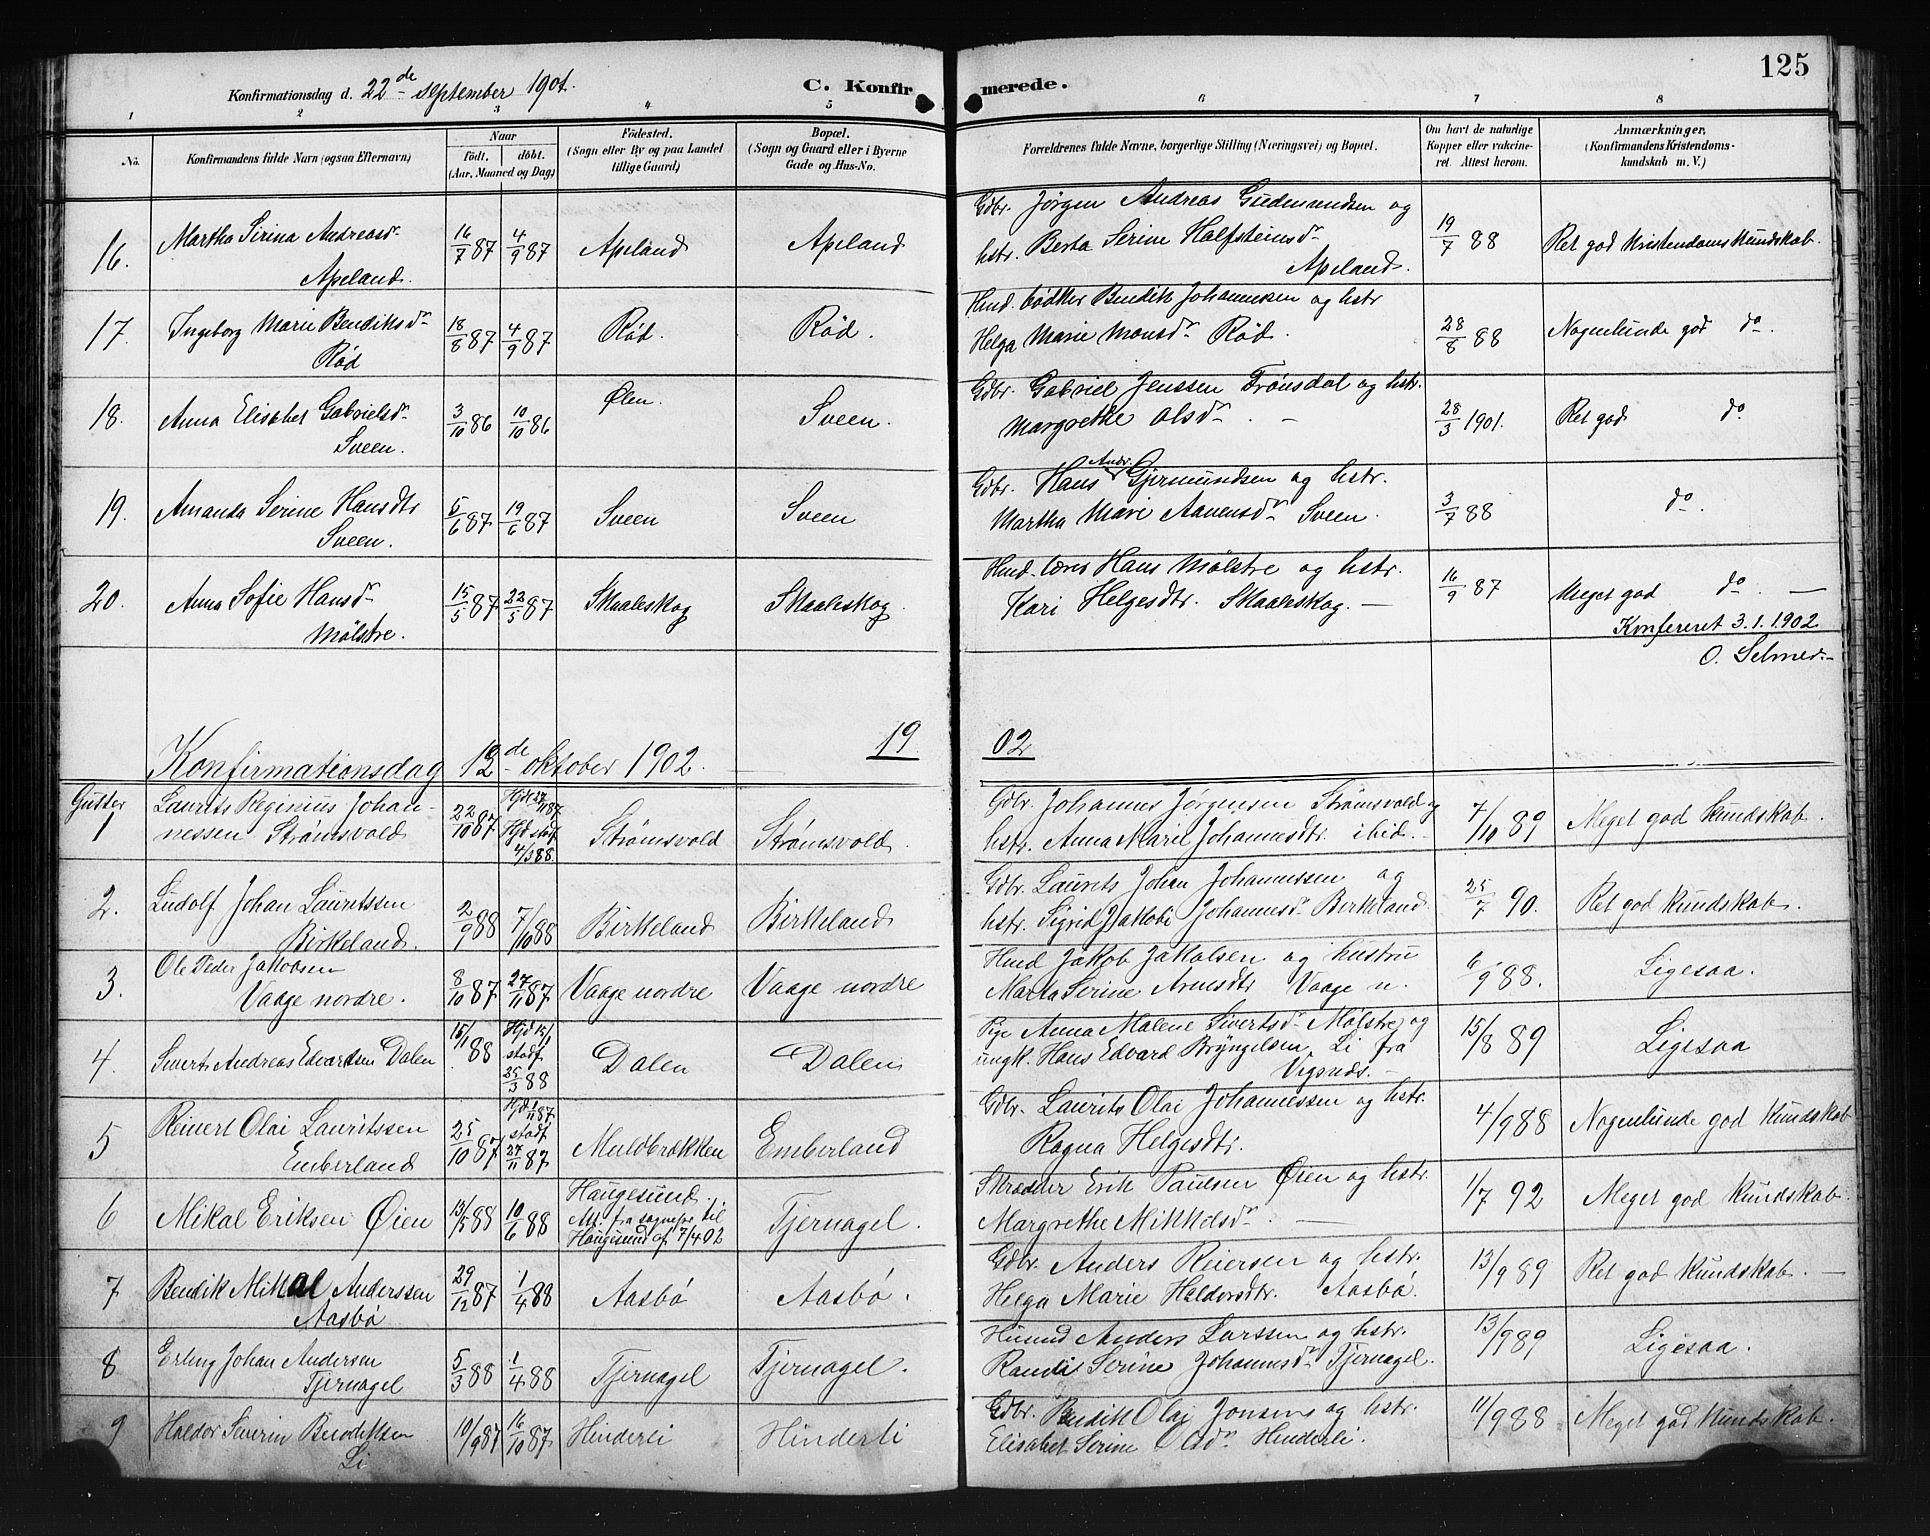 125
Konfirmationsdag d. 22de september 1901.
C. Konfirmerede.
1 2 3 4 5 6 7 8
No.
Konfirmandens fulde Navn (ogsaa Efternavn)
Naar
födt. döbt.
(Aar, Maaned og Dag)
Födested.
(Sogn eller By og paa Landet
tillige Gaard)
Bopæl.
(Sogn og Gaard eller i Byerne
Gade og Hus-No.
Forældrenes fulde Navne, borgerlige Stilling (Næringsvei) og Bopæl.
Om havt de naturlige
Kopper eller vakcine-
ret. Attest herom.
Anmærkninger,
(Konfirmandens Kristendoms-
kundskab m. V.)
16. Martha Sirina Andreasdr Apeland. 16/7 87 4/9 87 Apeland Apeland
Gdbr. Jørgen Andreas Gudmundsen og
hstr. Berta Serine Halfsteinsdr
Apeland.
19/7 88 Ret god Kristendoms Kundskab.
17. Ingeborg Marie Bendiksdr Rød 18/8 87 4/9 87 Rød. Rød.
Hmd. bødker Bendik Johannesen og hstr
Helga Marie Monsdr Rød.
28/8 88 Nogenlunde god do.
18. Anna Elisabet Gabrielsdr Sveen. 3/10 86 10/10 86 Ølen. Sveen.
Gdbr. Gabriel Jenssen Trønsdal og hstr.
Margrethe Olsdr. —
28/3 1901. Ret god do
19. Amanda Serine Hansdtr Sveen. 5/6 87 19/6 87 Sveen Sveen
Gdbr. Hans Andr. Gjermundsen og hstr.
Martha Marie Aamensdr Sveen.
3/7 88 do.
20. Anna Sofie Hansdr Mölstre. 15/5 87 22/5 87 Skaaleskog Skaaleskog.
Hmd. lærer Hans Mölstre og hstr.
Kari Helgesdtr. Skaaleskog. —
16/9 87 Meget god do. —
Konfereret 3.1.1902
O. Selmer.
19 02
Konfirmationsdag 12de oktober 1902. —
Gutter
1 Laurits Reginius Johannessen Strømsvold 22/10 87 Hjd 27/11 87 Hjd stadf. 4/3 88 Strømsvold Strømsvold.
Gdbr. Johannes Jørgensen Strømsvold og
hstr. Anna Marie Johannesdtr. ibid.
7/10 89 Meget god Kundskab.
2. Ludolf Johan Lauritssen Birkeland. 2/9 88 7/10 88 Birkeland Birkeland
Gdbr. Laurits Johan Johannessen og
hstr. Sigrid Jakobi Johannesdr Birkeland.
25/7 90. Ret god Kundskab.
3. Ole Peder Jakobsen Vaage nordre. 8/10 87 27/11 87 Vaage nordre Vaage nordre
Hmd Jakob Jakobsen og hustru
Marta Serine Arnesdtr Vaage n.
6/9 88. Ligesaa.
4. Sivert Andreas Edvardsen Dalen 15/1 88 Hjd 15/1 stadf. 25/3 88 Dalen Dalen
Pige Anna Malene Sivertsdr Mølstre og
ungk. Hans Edvard Bryngelsen Li fra
Vigsnæs. —
15/8 89 Ligesaa
5 Reinert Olai Lauritssen Emberland 25/10 87 Hjd 1/11 87 stadf 27/11 87 Muldbrækken Emberland
Gdbr. Laurits Olai Johannessen og hstr.
Ragna Helgesdtr.
4/9 88 Nogenlunde god Kundskab
6 Mikal Eriksen Øien 13/5 88 10/6 88 Haugesund. Att. fra sognepr. til Haugesund af 7/4 02 Tjernagel.
Skrædder Erik Paulsen Øien og hstr.
Margrethe Mikkelsdr. —
1/7 92 Meget god Kundskab.
7 Bendik Mikal Anderssen Aasbø 29/12 87 1/4 88 Aasbø Aasbø.
Gdbr. Anders Reiersen og hstr.
Helga Marie Haldorsdtr. Aasbø.
13/9 89 Ret god Kundskab. —
8 Erling Johan Andersen Tjernagel 5/3 88 1/4 88 Tjernagel Tjernagel.
Husmd Anders Larssen og hstr.
Randi Serine Johannesdr Tjernagel.
13/9 89 Ligesaa.
9 Haldor Severin Bendiksen Li 19/9 87 16/10 87 Hinderli Hinderli
Gdbr. Bendik Olaj Jonsen og hstr.
Elisabet Serine Olsdr Hinderli.
11/9 88 Meget god Kundskab.